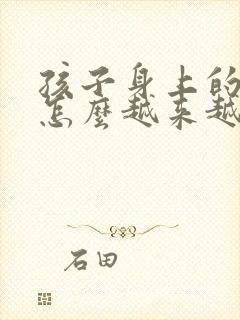 孩子身上的
怎麼越来越
石田